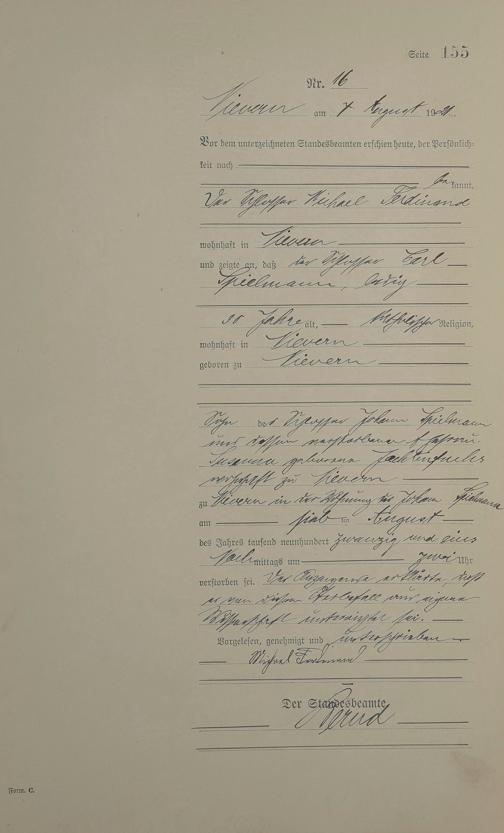 Seite 155
Nr. 16
Nievern am 7 August 1921.
Vor dem unterzeichneten Standesbeamten erschien heute, der Persönlich-
keit nach
bekannt,
Der Schlosser Michael Ferdinand
wohnhaft in Nievern
und zeigte an, daß der Schlosser Carl
Spielmann, ledig
30 Jahre alt, katholischer Religion,
wohnhaft in Nievern
geboren zu Nievern
Sohn des Schlosser Johann Spielmann
und dessen verstorbener Ehefrau
Susanna geborene
wohnhaft zu Nievern
zu Nievern in der Wohnung des Johann Spielmann
am August
des Jahres tausend neunhundert zwanzig und eins
Nachmittags um zwei Uhr
verstorben sei. Der Anzeigende erklärte, daß
er von diesem Sterbefall aus eigener
Wissenschaft unterrichtet sei.
Vorgelesen, genehmigt und unterschrieben
Michael Ferdinand
Der Standesbeamte
Form. C.